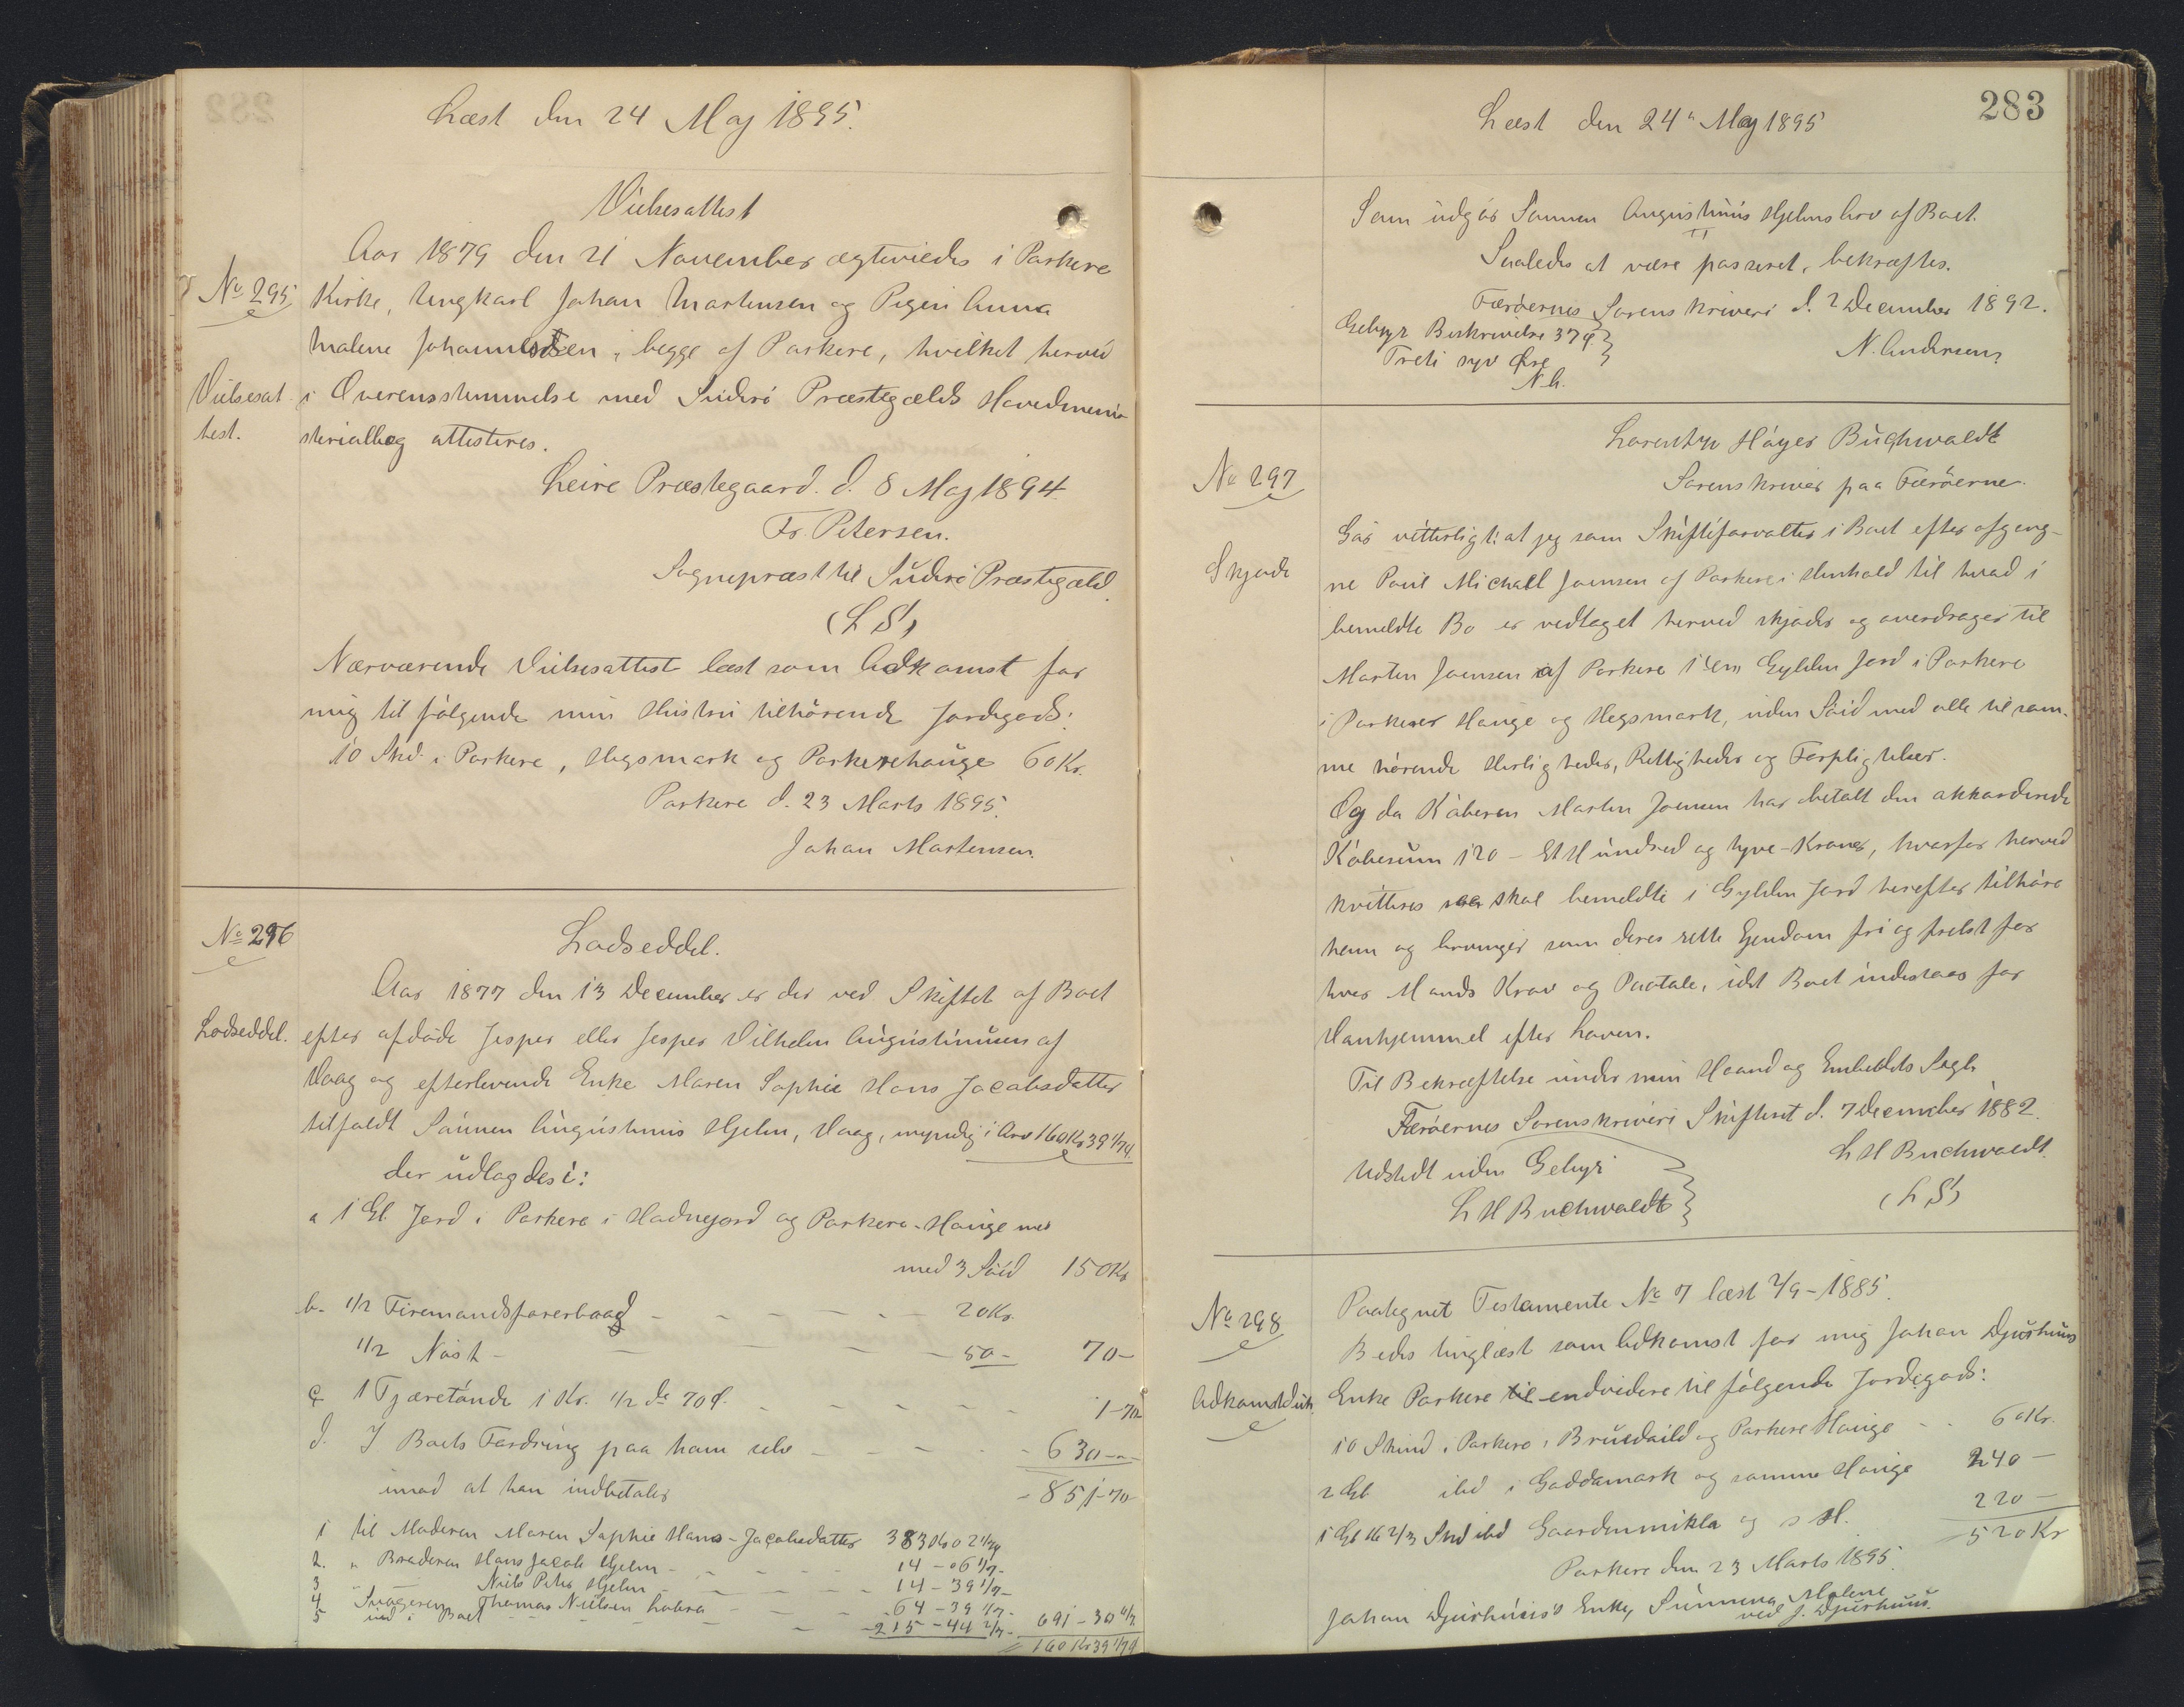 Læst den 24 Maj 1895.
Vielsesattest
No 295
Aar 1879 den 21 November ægteviedes i Porkere
Kirke, Ungkarl Johan Martensen og Pigen Anna
Malene Johannesen, begge af Porkere, hvilket herved
Vielsesat-
test.
i Overensstemmelse med Suderø Præstegælds Hovedmini-
sterialbog attesteres.
Leire Præstegaard. d. 8 Maj 1894.
Fr. Petersen.
Sognepræst til Suderø Præstegæld.
(L.S.)
Nærværende Vielsesattest læst som Adkomst for
mig til følgende min Hustru tilhørende Jordegods:
10 Skd. i Porkere, Hegsmark og Porkerehauge 60 Kr.
Porkere d. 23 Marts 1895.
Johan Martensen.
No 296
Lodseddel.
Aar 1877 den 13 December er der ved Skiftet af Boet
Lodseddel.
efter afdøde Jesper eller Jesper Vilhelm Augustinusen af
Vaag og efterlevende Enke Maren Sophie Hans Jacobsdatter
tilfaldt Sønnen Augustinus Hjelm, Vaag, myndig i Arv 160 Kr 39 1/7 ø.
der udlagdes i:
a 1 Gl. Jord i Porkere i Hadnegord og Porkere-Hauge med
med 3 Søid 150 Kr
b. 1/2 Firemandsfarerbaad - - - - 20 Kr.
1/2 Nøst - - - - 50 - 70 -
c 1 Tjæretønde 1 Kr. 1/2 do 70 ø. - - - - 1-70
d. I Boets Fordring paa ham selv - - - 630 -
imod at han indbetaler - 851-70
1 til Moderen Maren Sophie Hans-Jacobsdatter 383 Kr 02 1/7
2. " Broderen Hans Jacob Hjelm - - - 14 - 06 1/7 -
3 - Niels Peter Hjelm - - - 14 - 39 1/7 -
4 Svogeren Thomas Nielsen Lobra - - - 64 - 39 1/7 -
5 ind i Boet - - - 215 - 44 2/7 - 691 - 30 6/7
160 Kr 39 1/7 ø
283
Læst den 24 Maj 1895
Som udgør Sønnen Augustinus Hjelms Arv af Boet.
Saaledes at være passeret, bekræftes.
Færøernes Sorenskriveri d. 2 December 1892.
Gebyr Beskrivelse 37 ø
Treti syv Øre
N.A.
N. Andersen
No 297
Laurentz Høyer Buchwaldt
Sorenskriver paa Færøerne.
Skjøde
Gør vitterligt: at jeg som Skifteforvalter i Boet efter afgang-
ne Poul Michael Joensen af Porkere i Henhold til hvad i
bemeldte Bo er vedtaget herved skjøder og overdrager til
Morten Joensen af Porkere 1 en Gylden Jord i Porkere
i Porkerer Hauge og Hegsmark, uden Søid med alle til sam-
me hørende Herligheder, Rettigheder og Forpligtelser.
Og da Køberen Morten Joensen har betalt den akkorderede
Købesum 120 - Et Hundred og tyve - Kroner, hvorfor herved
kvitteres saa skal bemeldte 1 Gylden Jord herefter tilhøre
ham og Arvinger som deres rette Ejendom fri og frelst for
hver Mands Krav og Paatale, idet Boet indestaar for
Vanhjemmel efter Loven.
Til Bekræftelse under min Haand og Embedets Segl.
Færøernes Sorenskriveri Skifteret d. 7 December 1882.
L H Buchwaldt.
(L.S.)
Udstedt uden Gebyr
L H Buchwaldt
No 298
Paategnet Testamente No 7 læst 2/9 - 1885.
Bedes tinglæst som Adkomst for mig Johan Djurhuus
Adkomstdok.
Enke Porkere til endvidere til følgende Jordegods:
10 Skind i Porkere, Bruedaild og Porkere Hauge - - 60 Kr.
2 Gl. ibd i Gaddamark og samme Hauge 240 -
1 Gl 16 2/3 Skd ibd Gaardenmikla og s H. 220 -
520 Kr
Porkere den 23 Marts 1895.
Johan Djurhuus's Enke, Sunneva Malene
ved J. Djurhuus.